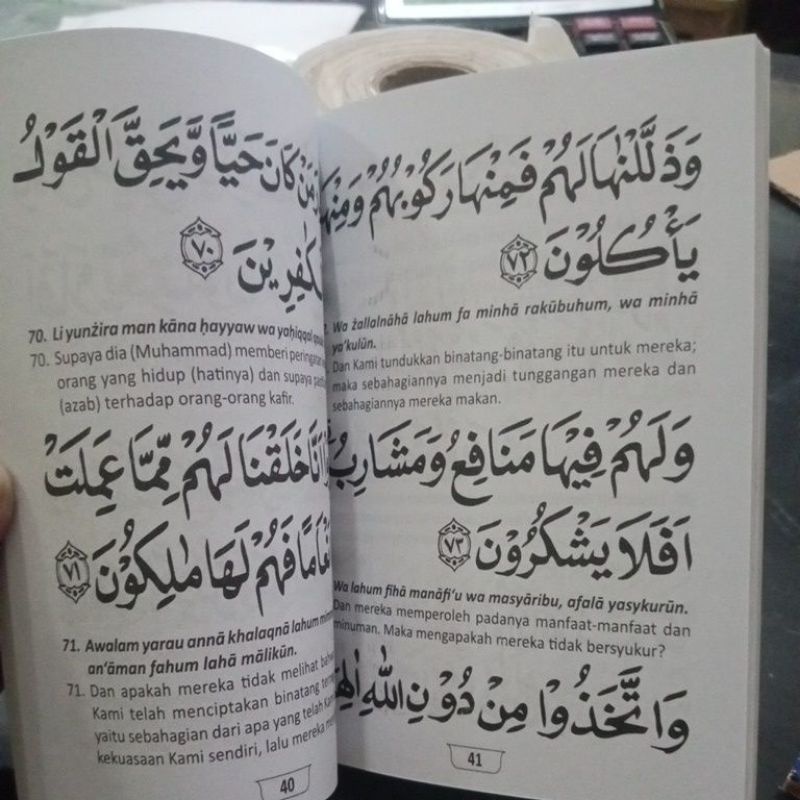 مَنْ كَانَ حَيًّا وَّيَحِقَّ الْقَوْلُ
الْكٰفِرِيْنَ ٧٠
70. Li yunżira man kāna ḥayyaw wa yaḥiqqal
70. Supaya dia (Muhammad) memberi
orang yang hidup (hatinya) dan supaya
(azab) terhadap orang-orang kafir.
اَنَّا خَلَقْنَا لَهُمْ مِّمَّا عَمِلَتْ
فَهُمْ لَهَا مٰلِكُوْنَ ٧١
71. Awalam yarau annā khalaqnā lahum
an‘āman fahum lahā mālikūn.
71. Dan apakah mereka tidak melihat
Kami telah menciptakan binatang
yaitu sebahagian dari apa yang telah
kekuasaan Kami sendiri, lalu mereka
40
وَذَلَّلْنٰهَا لَهُمْ فَمِنْهَا رَكُوْبُهُمْ وَمِنْهَا
يَأْكُلُوْنَ ٧٢
Wa żallalnāhā lahum fa minhā rakūbuhum, wa minhā
ya’kulūn.
Dan Kami tundukkan binatang-binatang itu untuk mereka;
maka sebahagiannya menjadi tunggangan mereka dan
sebahagiannya mereka makan.
وَلَهُمْ فِيْهَا مَنَافِعُ وَمَشَارِبُ
اَفَلَا يَشْكُرُوْنَ ٧٣
Wa lahum fīhā manāfi‘u wa masyāribu, afalā yasykurūn.
Dan mereka memperoleh padanya manfaat-manfaat dan
minuman. Maka mengapakah mereka tidak bersyukur?
وَاتَّخَذُوْا مِنْ دُوْنِ اللّٰهِ
41